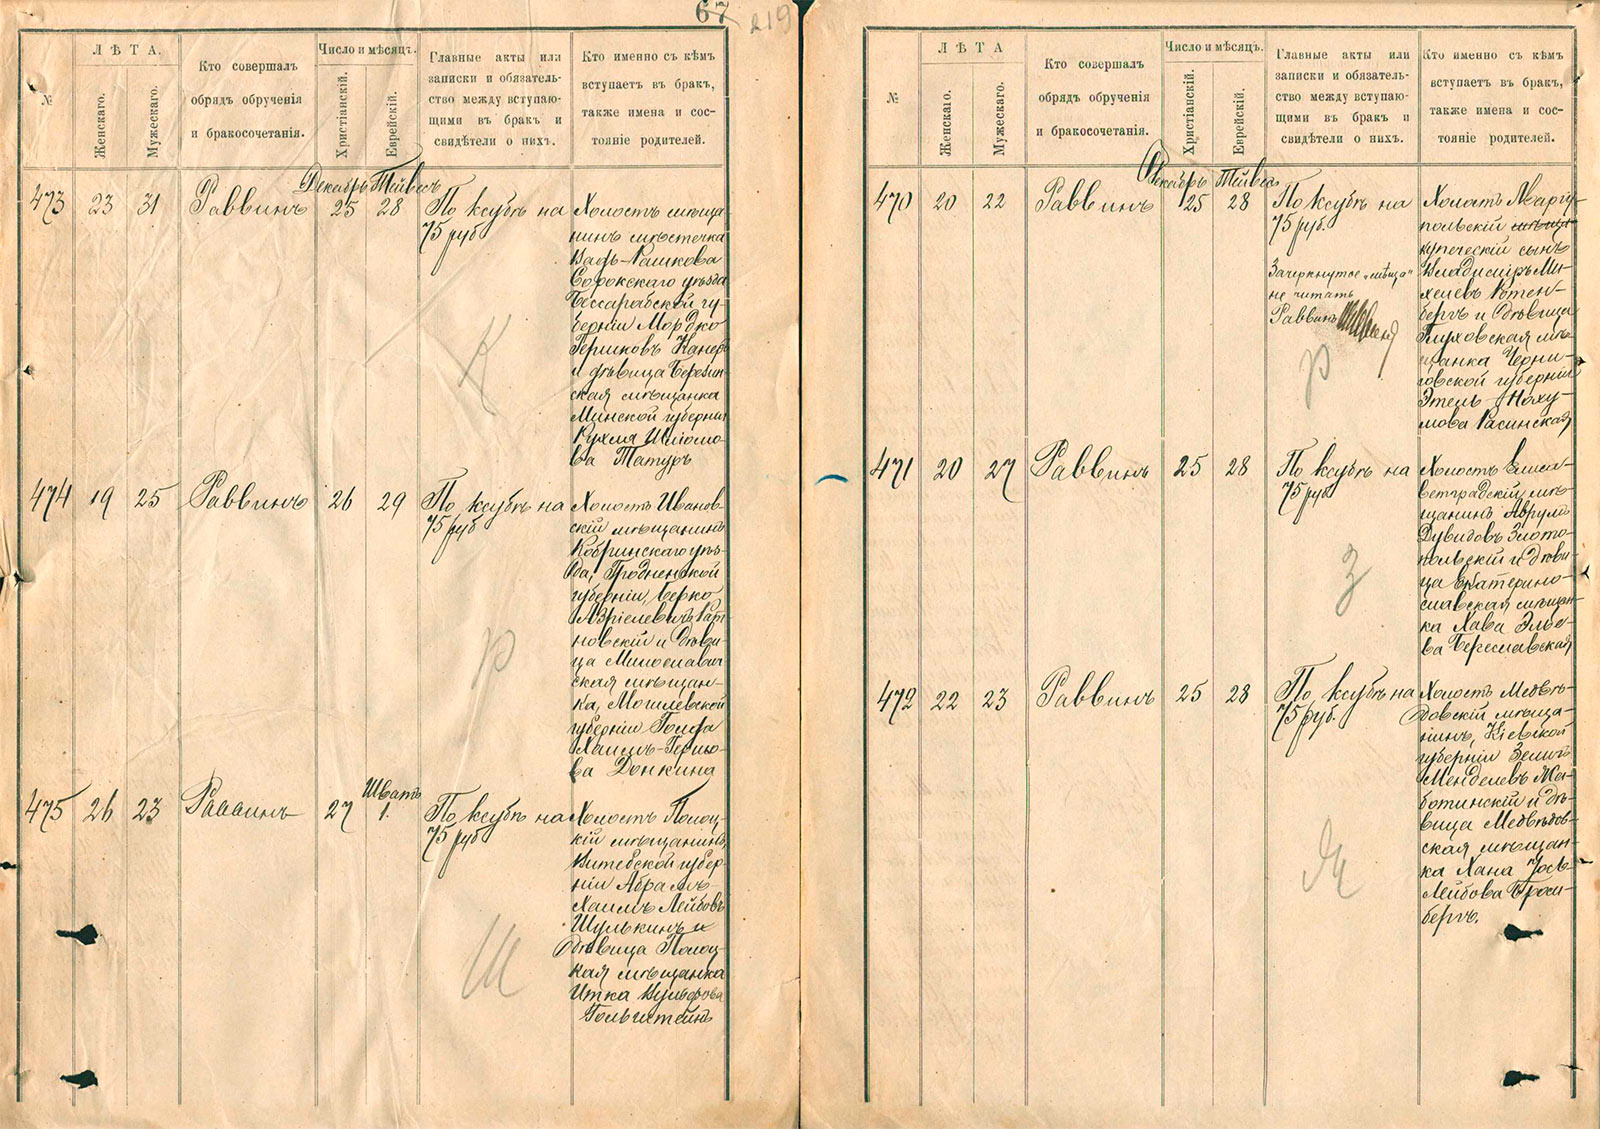 67
219
№
ЛѢТА.
Женскаго.
Мужескаго.
Кто совершалъ
обрядъ обрученія
и бракосочетанія.
Число и мѣсяцъ.
Христіанскій.
Еврейскій.
Главные акты или
записки и обязатель-
ство между вступаю-
щими въ бракъ и
свидѣтели о нихъ.
Кто именно съ кѣмъ
вступаетъ въ бракъ,
также имена и сос-
тояніе родителей.
473
23
31
Раввинъ
Декабрь
25
Тейвесъ
28
По ксубѣ на
75 руб
Холостъ мѣща-
нинъ мѣстечка
Вадъ-Рашкова
Сорокскаго уѣзда
Бессарабской гу-
берніи Мордко
Гершковъ Канеръ
и дѣвица Березин-
ская мѣщанка
Минской губерніи
Кухля Шліомо-
ва Татуръ
К
474
19
25
Раввинъ
26
29
По ксубѣ на
75 руб
Холостъ Иванов-
скій мѣщанинъ
Кобринскаго уѣз-
да, Гродненской
губерніи, Берко
Азріелевичъ Рат-
новскій и дѣви-
ца Милославич
ская мѣщан-
ка, Могилевской
губерніи Голда
Хаимъ-Гершо-
ва Донкина
Р
475
26
23
Раввинъ
27
Шватъ
1.
По ксубѣ на
75 руб
Холостъ Полоц-
кій мѣщанинъ,
Витебской губер-
ніи Абрамъ-
Хаимъ Лейбовъ
Шулькинъ и
дѣвица Полоц-
кая мѣщанка
Итка Вульфова
Гольштейнъ
Ш
№
ЛѢТА
Женскаго.
Мужескаго.
Кто совершалъ
обрядъ обрученія
и бракосочетанія.
Число и мѣсяцъ.
Христіанскій.
Еврейскій.
Главные акты или
записки и обязатель-
ство между вступаю-
щими въ бракъ и
свидѣтели о нихъ.
Кто именно съ кѣмъ
вступаетъ въ бракъ,
также имена и сос-
тояніе родителей.
470
20
22
Раввинъ
Декабрь
25
Тейвесъ
28
По ксубѣ на
75 руб.
Зачеркнутое „мѣща“
не читать
Раввинъ
Холостъ Маріу-
польскій мѣща
купеческій сынъ
Владиміръ Ми-
хелевъ Ротен-
бергъ и дѣвица
Глуховская мѣ-
щанка Черни-
говской губерніи
ЭтельНоху-
мова Расинская
Р
471
20
27
Раввинъ
25
28
По ксубѣ на
75 руб
Холостъ Елиса-
ветградскій мѣ-
щанинъ Аврумъ
Дувидовъ Злото-
польскій и дѣви-
ца Екатерино-
славская мѣщан-
ка Хава Элье-
ва Береславская
З
472
22
23
Раввинъ
25
28
По ксубѣ на
75 руб.
Холостъ Медвѣ-
довскій мѣща-
нинъ, Кіевской
губерніи Зелигъ
Менделевъ Жа-
ботинскій и дѣ-
вица Медвѣдов-
ская мѣщан-
ка Хана Іось-
Лейбова Гросъ-
бергъ.
Ж